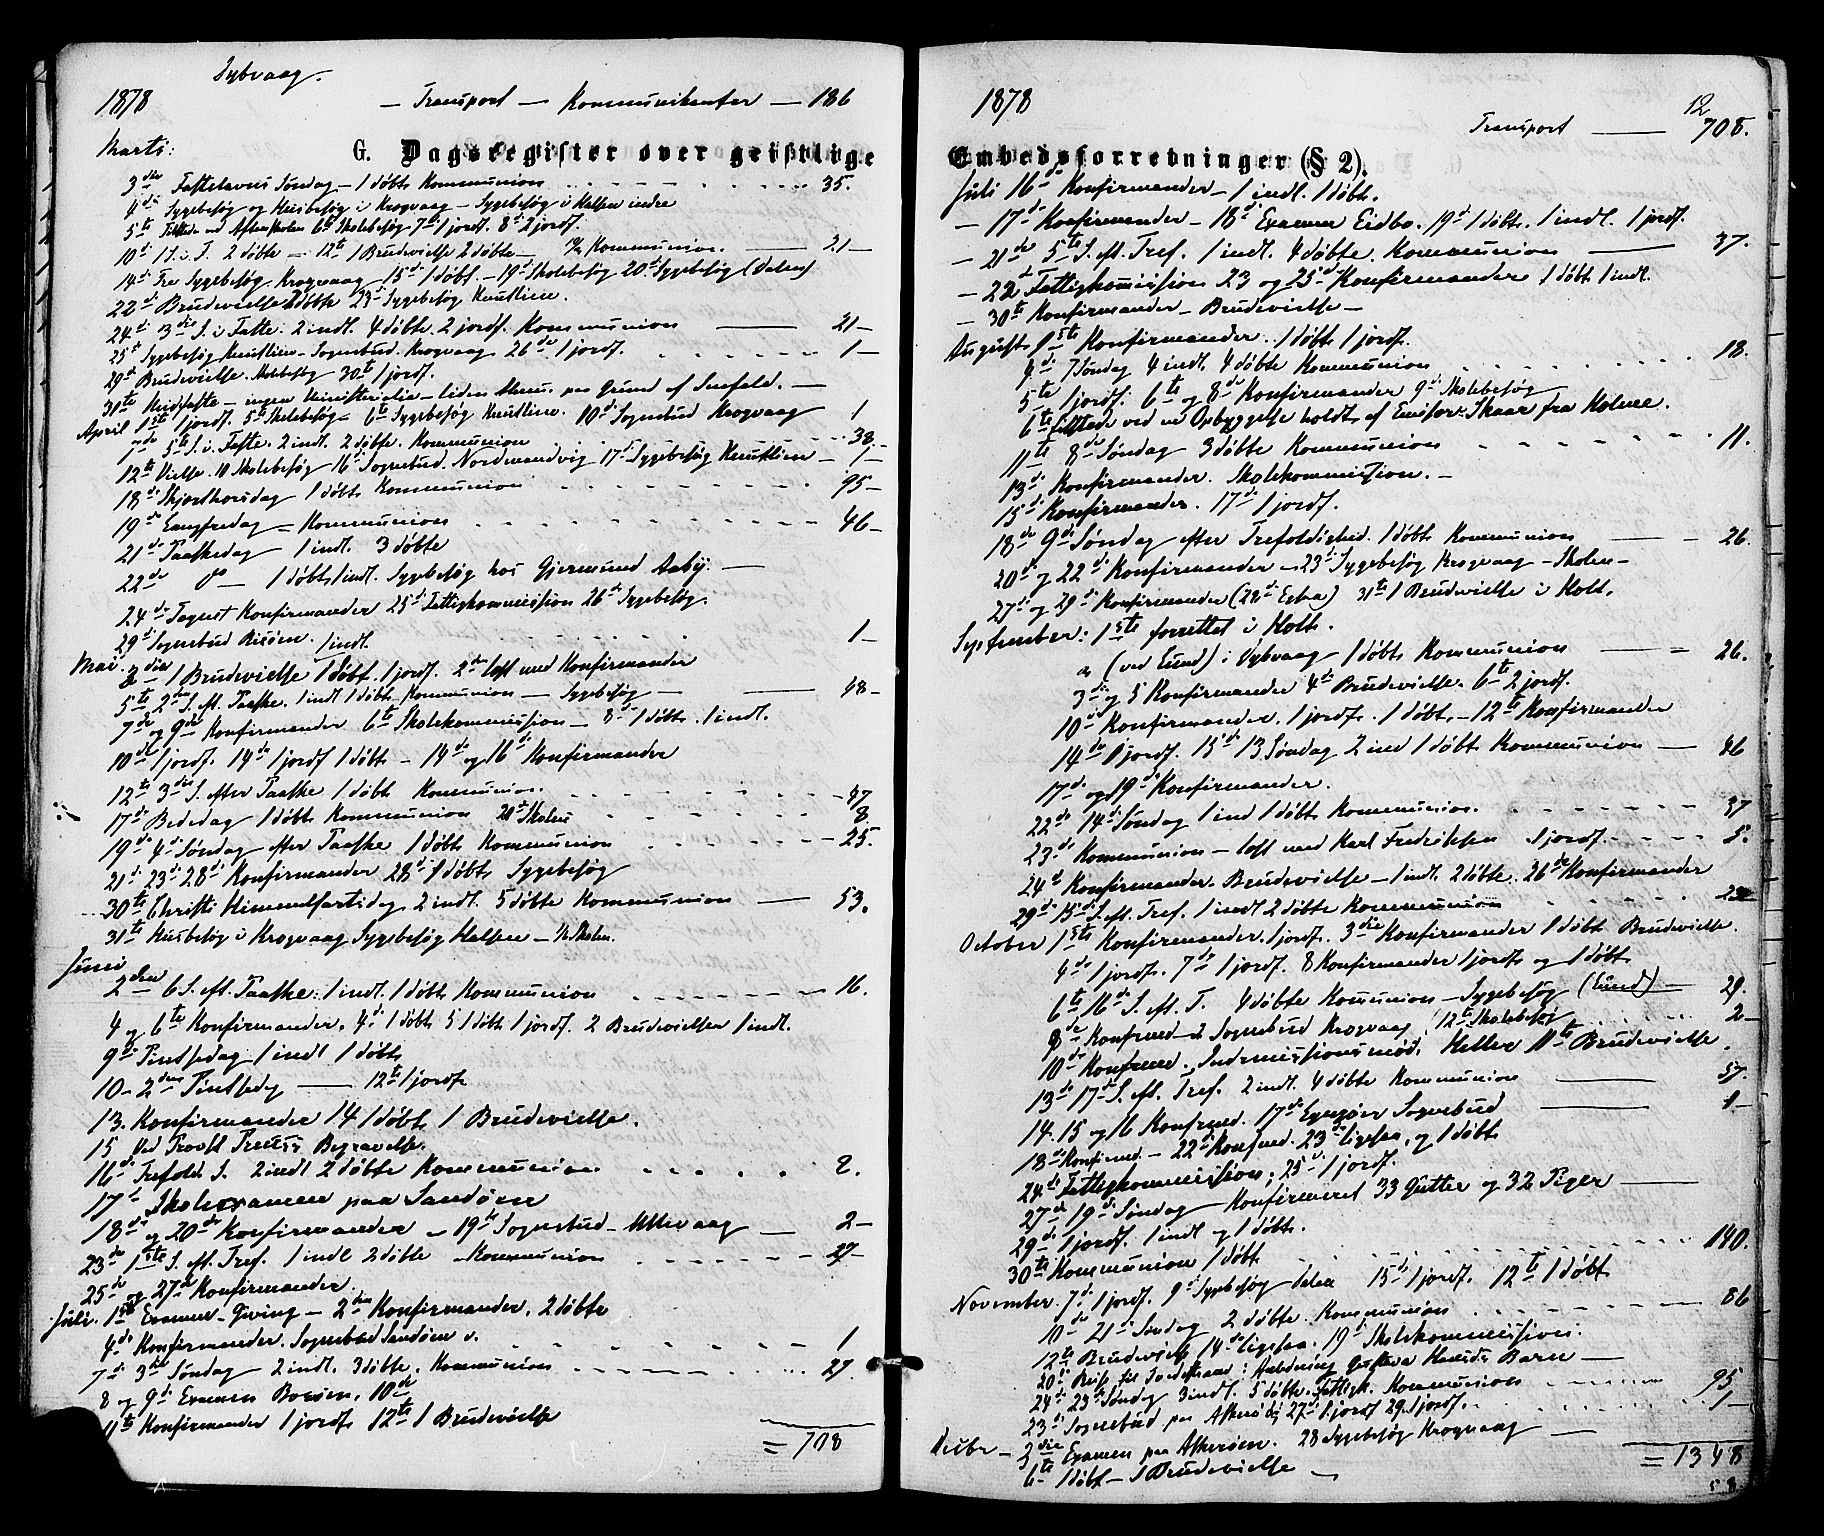 Dybvaag.
1878 — Transport — Kommunikanter — 186
Marts:
G. Dagsregister over geistlige
3die Fastelavns Søndag — 1 døbt Kommunion 35.
4de Sygebesøg og Husbesøg i Krogvaag — Sygebesøg i Halsen indre
5te Tilstede ved Aftenskolen 6te Skolebesøg 7de 1 jordf. 8de 2 jordf.
10de 1 S. i F. 2 døbte — 12te 1 Brudevielse 2 døbte — Kommunion. — 21 —
14de Sygebesøg Krogvaag 15de 1 døbt — 19de Skolebesøg 20de Sygebesøg (Dalen)
22de Brudevielse 2 døbte 23de Sygebesøg
24de 3die S. i Faste. 2 indl. 4 døbte. 2 jordf. Kommunion — 21 —
25de Sygebesøg Sognebud. Krogvaag 26de 1 jordf. 1 —
29de Brudevielse. Skolebesøg 30te 1 jordf.
31te Midfaste — ingen Ministerialia — liden Alm. paa Grund af Snefald. —
April 1ste 1 jordf. 5te Skolebesøg — 6te Sygebesøg 10de Sognebud Krogvaag 1
7de 5te S. i Faste. 2 indl. 2 døbte. Kommunion 38.
12te Vielse. Skolebesøg 16de Sognebud. Nordmandvig 17de Sygebesøg — 1 —
18de Skjærthorsdag 1 døbt Kommunion 95 —
19de Langfredag = Kommunion 46 —
21de Paaskedag 1 indl. 3 døbte
22de do — 1 døbt 1 indl. Sygebesøg hos Gjermund Aasby. —
24de Tagest Konfirmander 25de Fattigkommission 26de Sygebesøg.
29de Sognebud Risøen. 1 indl. 1 —
Mai. 3die 1 Brudevielse 1 døbt. 1 jordf. 2de løst med Konfirmander
5te 2den S. eft. Paaske. 1 indl 1 døbt. Kommunion — Sygebesøg — 48 —
7de og 9de Konfirmander 6te Skolekommission — 8de 1 døbt. 1 indl.
10de 1 jordf. 14de 1 jordf 1 døbt — 14de og 16de Konfirmander
12te 3die S. efter Paaske 1 døbt Kommunion. 47
17de Bededag 1 døbt Kommunion 20de Skolen 8
19de 4de Søndag efter Paaske 1 døbt Kommunion 25.
21de 23de 28de Konfirmander 28de 1 døbt Sygebesøg
30te Christi Himmelfartsdag 2 indl. 5 døbte Kommunion — 53.
31te Husbesøg i Krogvaag Sygebesøg Halsen — Skolen.
Juni
2den 6 S. eft. Paaske: 1 indl. 1 døbt Kommunion 16.
4 og 6te Konfirmander. 4de 1 døbt 5 1 døbt 1 jordf. 2 Brudevielser 1 indl.
9de Pintsedag 1 indl 1 døbt
10 — 2den Pintsedag — 12te 1 jordf
13. Konfirmander 14 1 døbt 1 Brudevielse.
15 Ved Provst Begravelse.
16de Trefold. S. 2 indl 2 døbte Kommunion 2.
17de Skoleexamen paa Sandøen
18de og 20de Konfirmander — 19de Sognebud — — 2 —
23de 1ste S. eft. Tref. 1 indl 2 døbte — Kommunion 27 —
25de og 27de Konfirmander.
Juli. 1ste Examen Giving — 2den Konfirmander. 2 døbte
4de Konfirmander. Sognebud Sandøen 1
7de 3die Søndag 2 indl. 3 døbte. Kommunion 27.
8 og 9de Examen Borøen. 10de
11te Konfirmander 1 jordf 12te 1 Brudevielse
= 708
1878 12
Transport — 708.
Embedsforretninger (§ 2).
Juli 16de Konfirmander — 1 indl. 1 døbt.
— 17de Konfirmander — 18de Examen Eidbo. 19de 1 døbt. 1 indl. 1 jordf.
— 21de 5te S. eft. Tref. 1 indl. 4 døbte. Kommunion — 37.
— 22de Fattigkommission 23 og 25de Konfirmander 1 døbt 1 indl.
— 30te Konfirmander — Brudevielse —
August 1ste Konfirmander. 1 døbt 1 jordf.
4de 7 Søndag 4 indl. 4 døbte Kommunion 18.
5te 1 jordf. 6te og 8de Konfirmander 9de Skolebesøg
6te tilstede ved en Opbyggelse holdt af Emissær Skaar fra Holme.
11te 8de Søndag 3 døbte Kommunion 11.
13de Konfirmander. Skolekommission. —
15de Konfirmander. 17de 1 jordf.
18de 9de Søndag efter Trefoldighed. 1 døbt Kommunion — 26.
20de og 22de Konfirmander — 23de Sygebesøg Krogvaag — Skolen —
27de og 29de Konfirmander (28de Extra) 31te 1 Brudevielse i Holt.
September: 1ste forrettet i Holt.
(ved Lund) i Dybvaag 1 døbt Kommunion — 26.
3die og 5 Konfirmander 4de Brudevielse. 6te 2 jordf.
10de Konfirmander. 1 jordf. 1 døbt. — 12te Konfirmander
14de 1 jordf. 15de 13 Søndag 2 ind 1 døbt Kommunion — 46
17de og 19de Konfirmander.
22de 14de Søndag 1 ind 1 døbt Kommunion. 37
23de Kommunion — løst med Karl Fredriksen 1 jordf. 5.
24de Konfirmander. Brudevielse — 1 indl. 2 døbte. 26de Konfirmander
29de 15de S. eft. Tref. 1 indl 2 døbte Kommunion 22
October 1ste Konfirmander. 1 jordf. 3die Konfirmander 1 døbt Brudevielse.
4de 1 jordf. 7de 1 jordf. 8 Konfirmander 1 jordf og 1 døbt
6te 16de S. eft. T. 4 døbte Komunion — Sygebesøg (Lund) — 29.
8de Konfirmd — Sognebud Krogvaag 12te Skolebesøg 2 —
10de Konfirmd. Indremissionsmøde. 11te Brudevielse.
13de 17de S. eft. Tref. 2 indl. 4 døbte Kommunion — 57.
14. 15 og 16 Konfirmd. 17de Sognebud — 1 —
18de Konfirmd. — 22de Konfirmd. 23de ligesaa, og 1 døbt
24de Fattigkommission; 25de 1 jordf.
27de 19de Søndag — Konfirmeret 33 Gutter og 32 Piger —
29de 1 jordf. 1 indl og 1 døbt.
30te Kommunion 1 døbt 140.
November. 7de 1 jordf. 9de Sygebesøg Dalen 15de 1 jordf. 12te 1 døbt
10de 21de Søndag 2 døbte. Kommunion 86
12te Brudeviels 14de ligesaa. 19de Skolekommission.
20de Reise til i Anledning Barn —
24de 23de Søndag 3 indl. 5 døbte. Fattigk. Kommunion 95
23de Sognebud paa Askerøen 27de 1 jordf 29. 1 jordf. 1 —
Decbr — 3die Examen paa Askerøen. 28 Sygebesøg Krogvaag —
6te 1 døbt — 1 Brudevielse —
= 1348
58